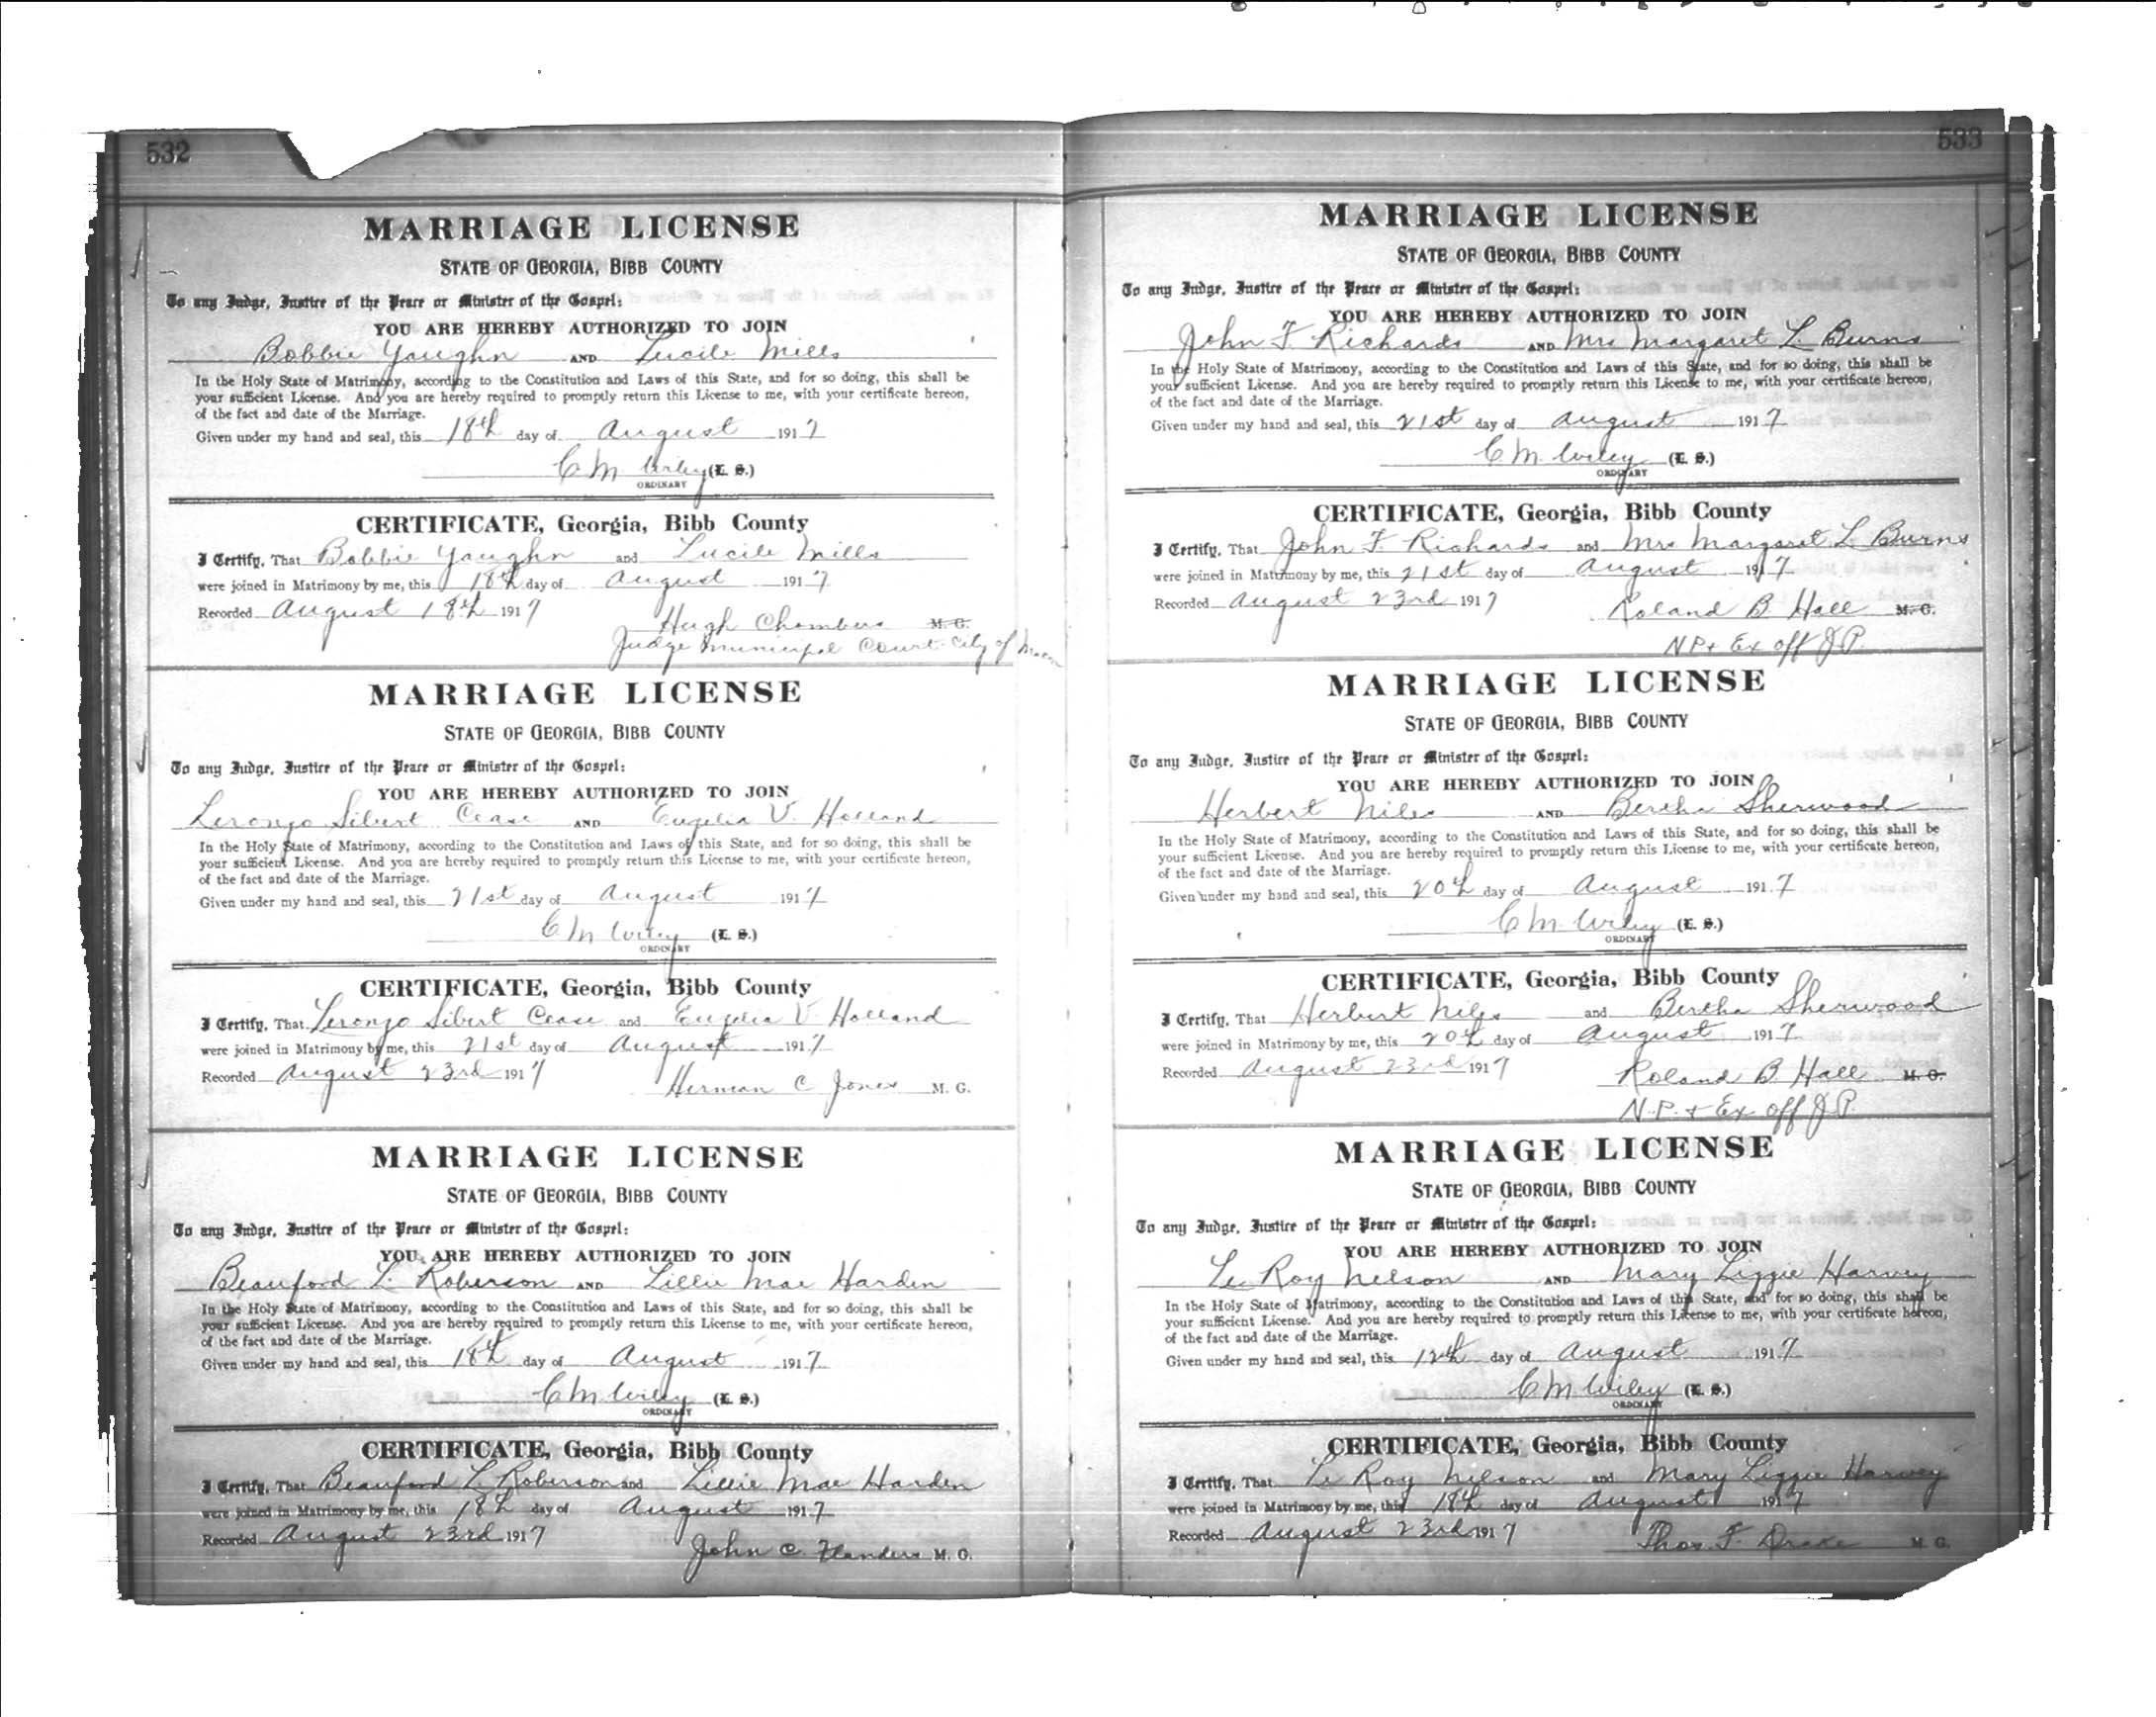 532
MARRIAGE LICENSE
STATE OF GEORGIA, BIBB COUNTY
To any Judge, Justice of the Peace or Minister of the Gospel:
YOU ARE HEREBY AUTHORIZED TO JOIN
Bobbie Vaughn AND Lucile Mills
In the Holy State of Matrimony, according to the Constitution and Laws of this State, and for so doing, this shall be
your sufficient License. And you are hereby required to promptly return this License to me, with your certificate hereon,
of the fact and date of the Marriage.
Given under my hand and seal, this 18th day of August 1917
C M Wiley (L. S.)
ORDINARY
CERTIFICATE, Georgia, Bibb County
I Certify, That Bobbie Vaughn and Lucile Mills
were joined in Matrimony by me, this 18th day of August 1917
Recorded August 18th 1917
Hugh Chambers M. G.
Judge Municipal Court City of Macon
MARRIAGE LICENSE
STATE OF GEORGIA, BIBB COUNTY
To any Judge, Justice of the Peace or Minister of the Gospel:
YOU ARE HEREBY AUTHORIZED TO JOIN
Leronzo Sibert Cease AND Eugelia V. Holland
In the Holy State of Matrimony, according to the Constitution and Laws of this State, and for so doing, this shall be
your sufficient License. And you are hereby required to promptly return this License to me, with your certificate hereon,
of the fact and date of the Marriage.
Given under my hand and seal, this 21st day of August 1917
C M Wiley (L. S.)
ORDINARY
CERTIFICATE, Georgia, Bibb County
I Certify, That Leronzo Sibert Cease and Eugelia V Holland
were joined in Matrimony by me, this 21st day of August 1917
Recorded August 23rd 1917
Herman C Jones M. G.
MARRIAGE LICENSE
STATE OF GEORGIA, BIBB COUNTY
To any Judge, Justice of the Peace or Minister of the Gospel:
YOU ARE HEREBY AUTHORIZED TO JOIN
Beauford L. Roberson AND Lillie Mae Harden
In the Holy State of Matrimony, according to the Constitution and Laws of this State, and for so doing, this shall be
your sufficient License. And you are hereby required to promptly return this License to me, with your certificate hereon,
of the fact and date of the Marriage.
Given under my hand and seal, this 18th day of August 1917
C M Wiley (L. S.)
ORDINARY
CERTIFICATE, Georgia, Bibb County
I Certify, That Beauford L Roberson and Lillie Mae Harden
were joined in Matrimony by me, this 18th day of August 1917
Recorded August 23rd 1917
John C. Flanders M. G.
533
MARRIAGE LICENSE
STATE OF GEORGIA, BIBB COUNTY
To any Judge, Justice of the Peace or Minister of the Gospel:
YOU ARE HEREBY AUTHORIZED TO JOIN
John F Richards AND Mrs Margaret L. Burns
In the Holy State of Matrimony, according to the Constitution and Laws of this State, and for so doing, this shall be
your sufficient License. And you are hereby required to promptly return this License to me, with your certificate hereon,
of the fact and date of the Marriage.
Given under my hand and seal, this 21st day of August 1917
C M. Wiley (L. S.)
ORDINARY
CERTIFICATE, Georgia, Bibb County
I Certify, That John F. Richards and Mrs Margaret L Burns
were joined in Matrimony by me, this 21st day of August 1917
Recorded August 23rd 1917
Roland B Hall M. G.
N P & Ex off J P.
MARRIAGE LICENSE
STATE OF GEORGIA, BIBB COUNTY
To any Judge, Justice of the Peace or Minister of the Gospel:
YOU ARE HEREBY AUTHORIZED TO JOIN
Herbert Niles AND Bertha Sherwood
In the Holy State of Matrimony, according to the Constitution and Laws of this State, and for so doing, this shall be
your sufficient License. And you are hereby required to promptly return this License to me, with your certificate hereon,
of the fact and date of the Marriage.
Given under my hand and seal, this 20th day of August 1917
C M. Wiley (L. S.)
ORDINARY
CERTIFICATE, Georgia, Bibb County
I Certify, That Herbert Niles and Bertha Sherwood
were joined in Matrimony by me, this 20th day of August 1917
Recorded August 23rd 1917
Roland B Hall M. G.
N. P. & Ex off J P.
MARRIAGE LICENSE
STATE OF GEORGIA, BIBB COUNTY
To any Judge, Justice of the Peace or Minister of the Gospel:
YOU ARE HEREBY AUTHORIZED TO JOIN
Le Roy Nelson AND Mary Lizzie Harvey
In the Holy State of Matrimony, according to the Constitution and Laws of this State, and for so doing, this shall be
your sufficient License. And you are hereby required to promptly return this License to me, with your certificate hereon,
of the fact and date of the Marriage.
Given under my hand and seal, this 12th day of August 1917
C M Wiley (L. S.)
ORDINARY
CERTIFICATE, Georgia, Bibb County
I Certify, That Le Roy Nelson and Mary Lizzie Harvey
were joined in Matrimony by me, this 18th day of August 1917
Recorded August 23rd 1917
Thos. F. Drake M. G.